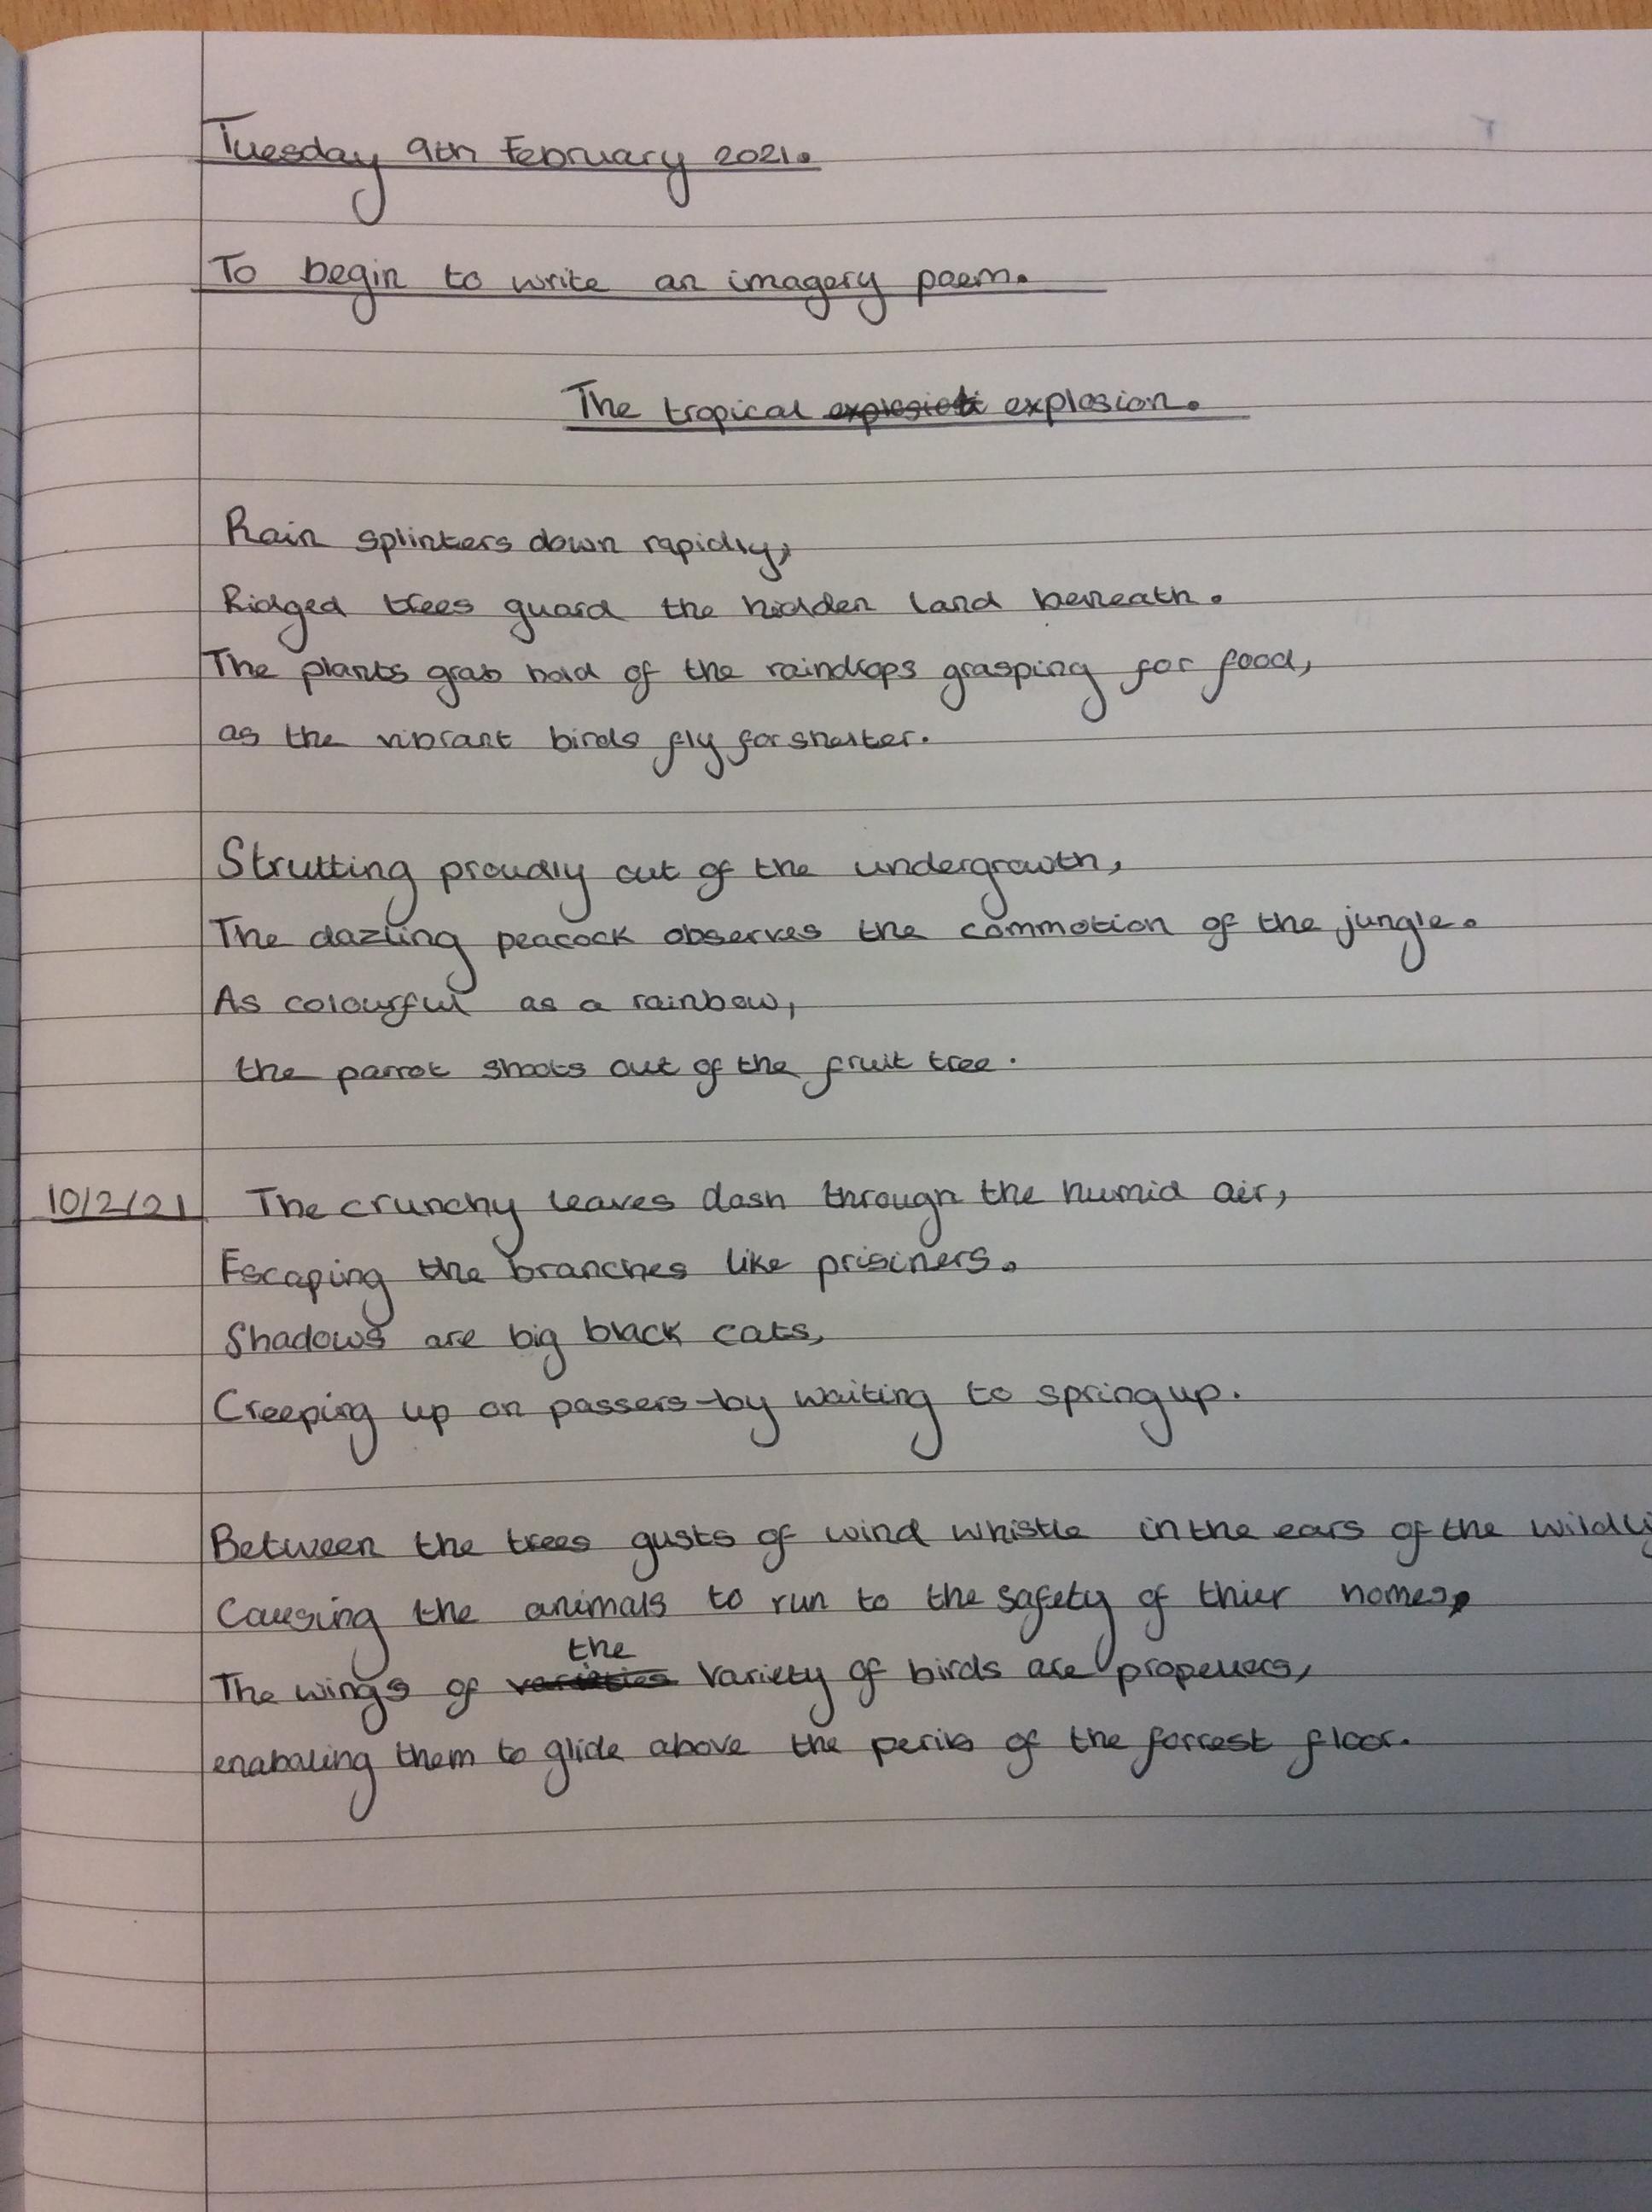 Tuesday 9th February 2021.
To begin to write an imagery poem.
The tropical explosion.
Rain splinters down rapidly,
Ridged trees guard the hidden land beneath.
The plants grab hold of the raindrops grasping for food,
as the vibrant birds fly for shelter.
Strutting proudly out of the undergrowth,
The dazling peacock observes the commotion of the jungle.
As colourful as a rainbow,
the parrot shoots out of the fruit tree.
10/2/21 The crunchy leaves dash through the humid air,
Escaping the branches like prisiners.
Shadows are big black cats,
Creeping up on passers-by waiting to spring up.
Between the trees gusts of wind whistle in the ears of the
Causing the animals to run to the safety of thier homes,
The wings of the variety of birds are propellers,
enabaling them to glide above the perils of the forrest floor.